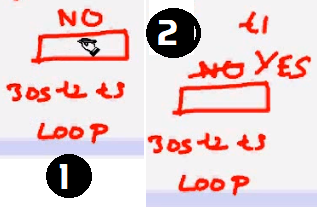 NO
30s t2 t3
LOOP
1
2
t1
NO YES
30s t2 t3
LOOP